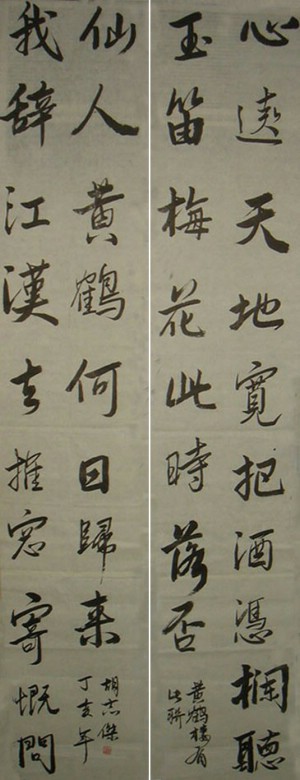 心遠天地寬把酒憑欄聽
玉笛梅花此時落否
黄鶴樓有
此聯
我辭江漢去推窓寄慨問
仙人黄鶴何日歸来
丁亥年
胡志傑